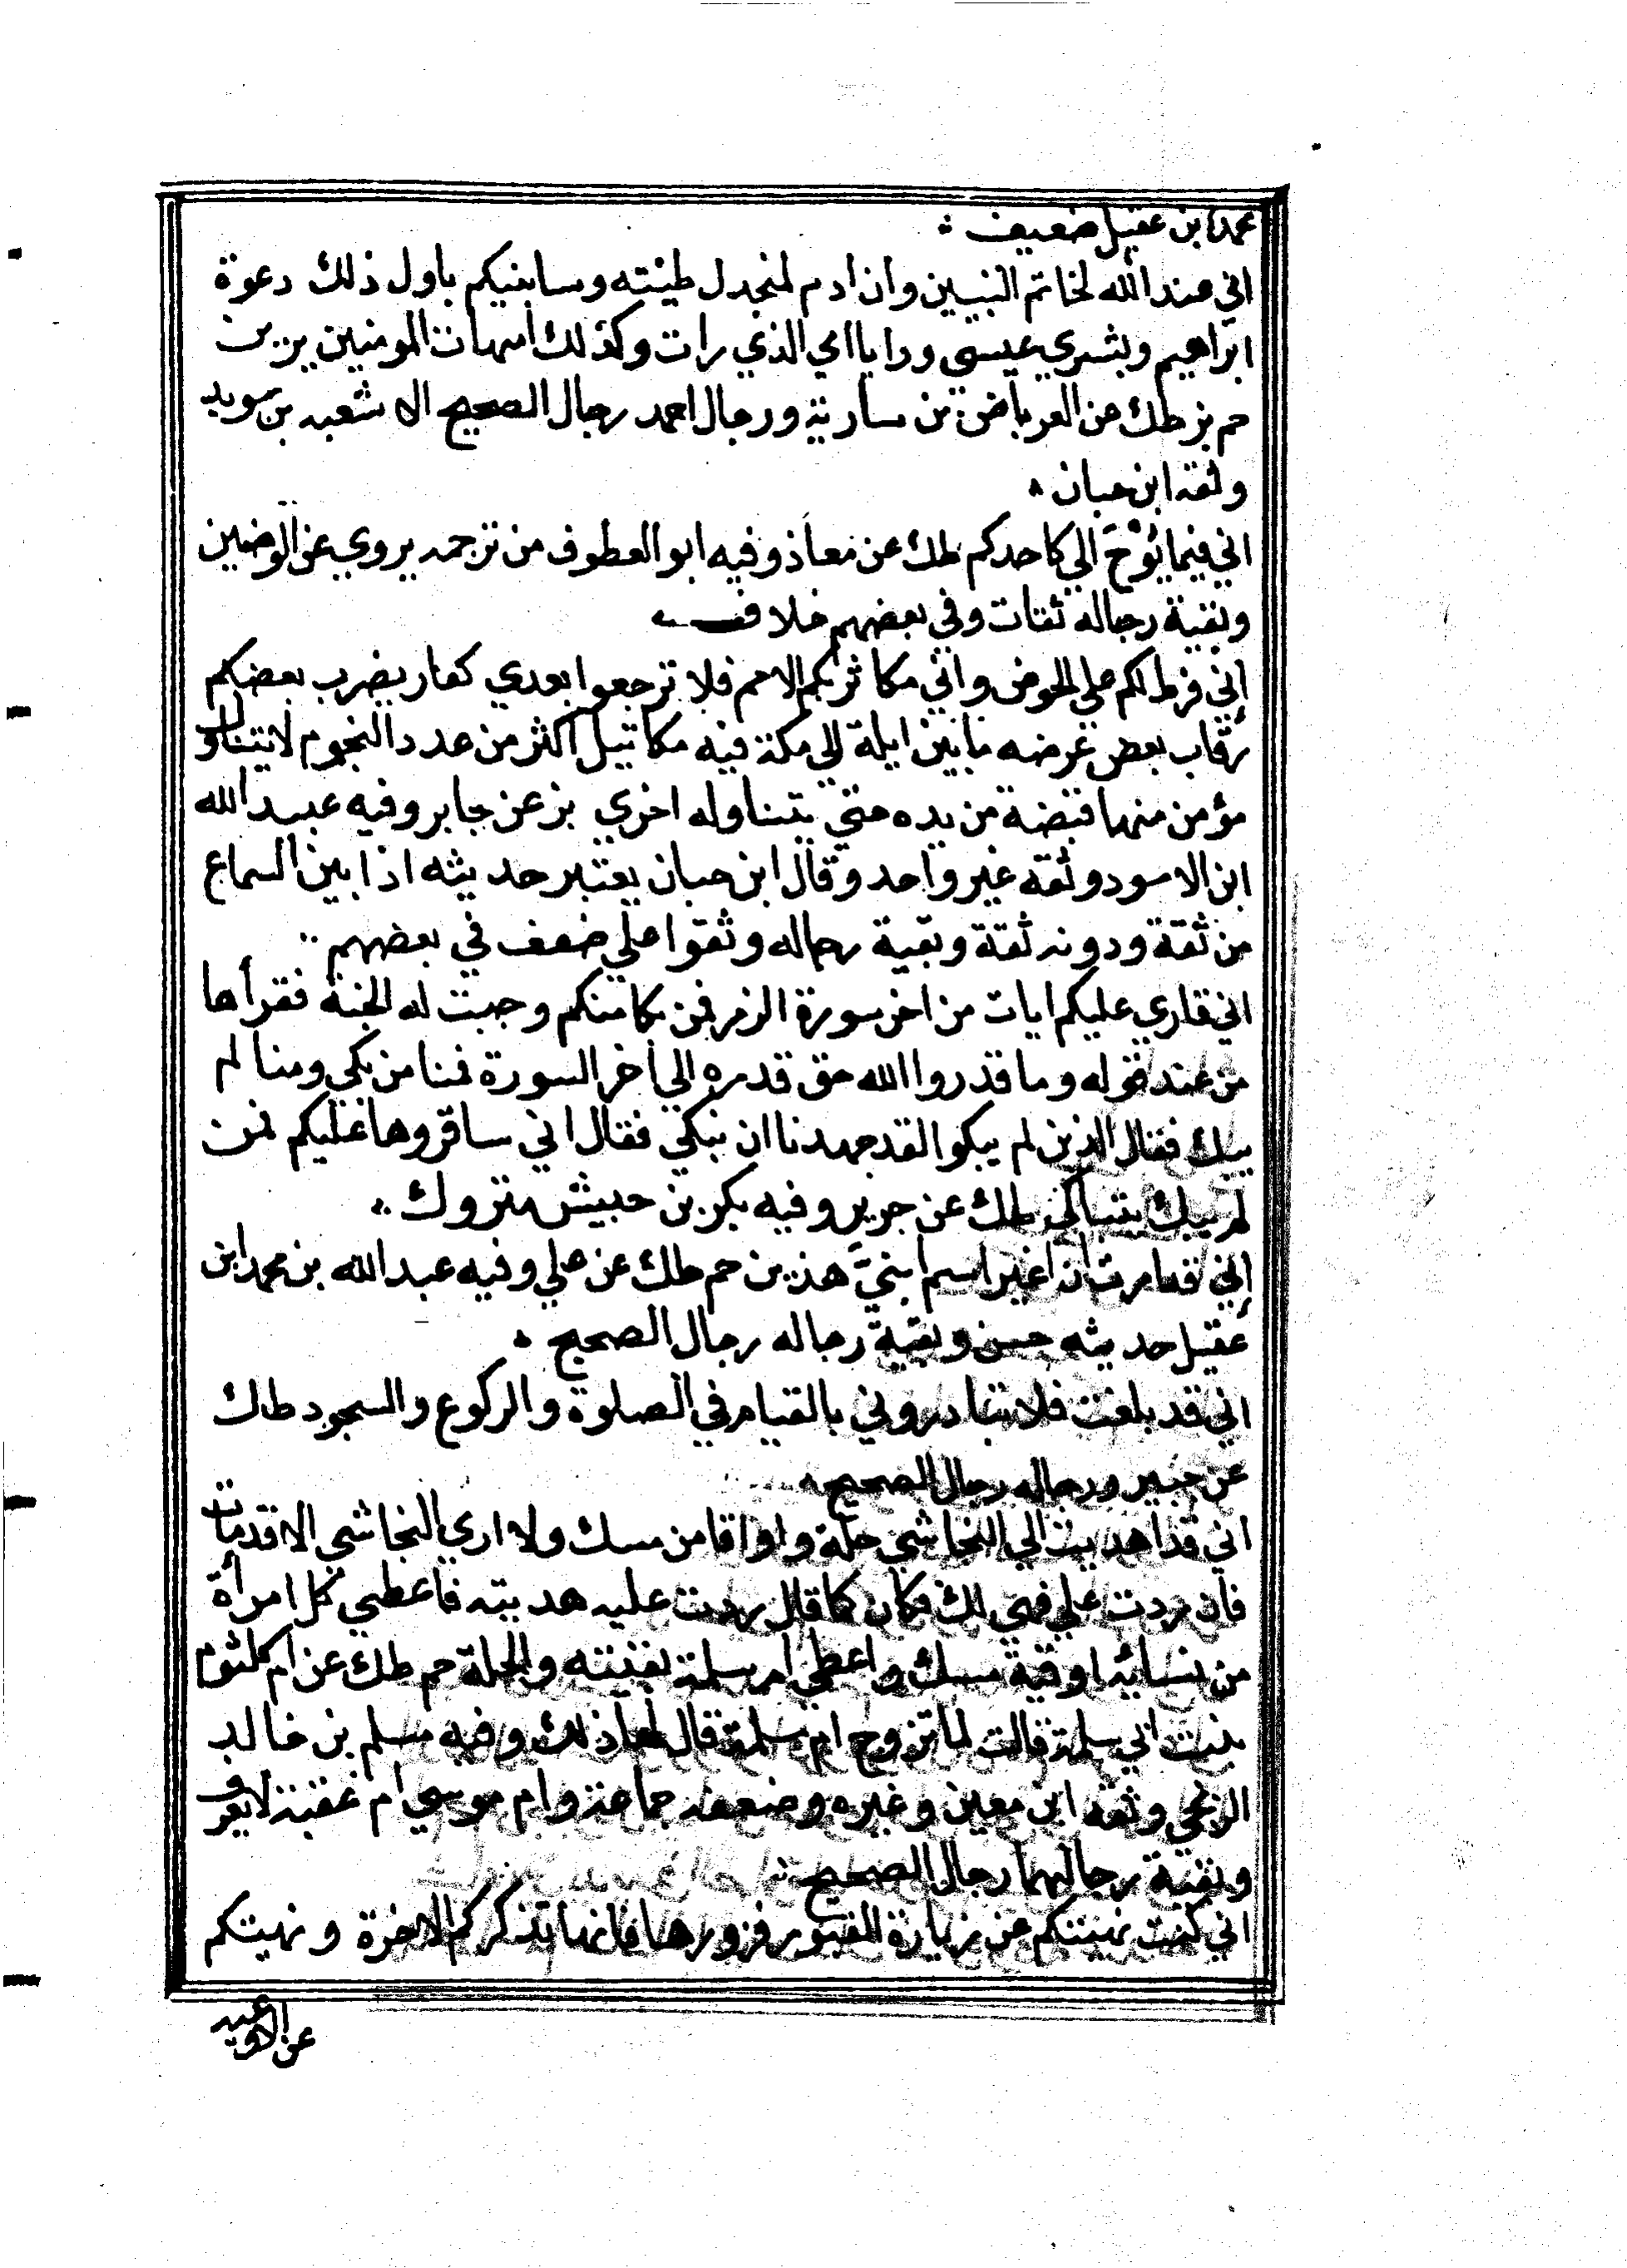 محمد ابن عقيل ضعيف
اني عند الله لخاتم النبيين وان ادم لمنجدل طينته وسابنيكم باول ذلك دعوة
ابراهيم وبشري عيسي ورايا امي الذي رات وكذلك امهات المومنين يرين
حم بز طك عن العرباض بن سارية ورجال احمد رجال الصحيح الا شعبه بن سويد
وثقه ابن حبان
اني فيما يُوْحَ الي كاحدكم طك عن معاذ وفيه ابو العطوف من ترجمه يروي عن الوضين
وبقية رجاله ثقات وفي بعضهم خلاف
إني فرط لكم علي الحوض واني مكاثر بكم الامم فلا ترجعوا بعدي كفار يضرب بعضكم
رقاب بعض عرضه ما بين ايلة الي مكة فيه مكاتيل اكثر من عدد النجوم لا يتناول
مؤمن منها قبضة من يده حتي يتناوله اخري بز عن جابر وفيه عبيد الله
ابن الاسود وثقه غير واحد وقال ابن حبان يعتبر حديثه اذا بين السماع
من ثقة ودونه ثقة وبقية رجاله وثقوا علي ضعف في بعضهم
اني قاري عليكم ايات من اخر سورة الزمر فمن بكا منكم وجبت له الجنة فقرأها
من عند قوله وما قدروا الله حق قدره الي أخر السورة فمنا من بكي ومنا لم
يبك فقال الذين لم يبكوا لقد جهدنا ان نبكي فقال اني ساقروها عليكم فمن
لم يبك يتباكي طك عن جرير وفيه بكر بن حبيش متروك
إني قد امرت ان اغير اسم ابنيَّ هذين حم طك عن علي وفيه عبد الله بن محمد ابن
عقيل حديثه حسن وبقية رجاله رجال الصحيح
اني قد بلغت فلا تبادروني بالقيام في الصلوة والركوع والسجود طك
عن جبير ورجاله رجال الصحيح
اني قد اهديت الي النجاشي حلة واواقا من مسك ولا اري النجاشي الا قد مات
فان ردت علي فهي لك فكان كما قال ردت عليه هديته فاعطي كل امرأة
من نسائه اوقية مسك واعطي ام سلمة بقيته والحلة حم طك عن ام كلثوم
بنت ابي سلمة قالت لما تزوج ام سلمة قال لها ذلك وفيه مسلم بن خالد
الزنجي وثقه ابن معين وغيره وضعفه جماعة وام موسي ام عقبة لا يعرف
وبقية رجالهما رجال الصحيح
اني كنت نهيتكم عن زيارة القبور فزورها فانها تذكركم الاخرة ونهيتكم
عن الاوعيه